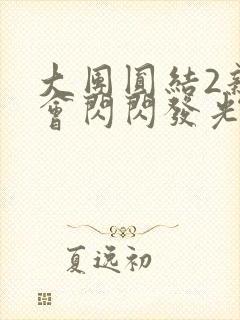 大團圓結2新
會閃閃發光
夏逸初